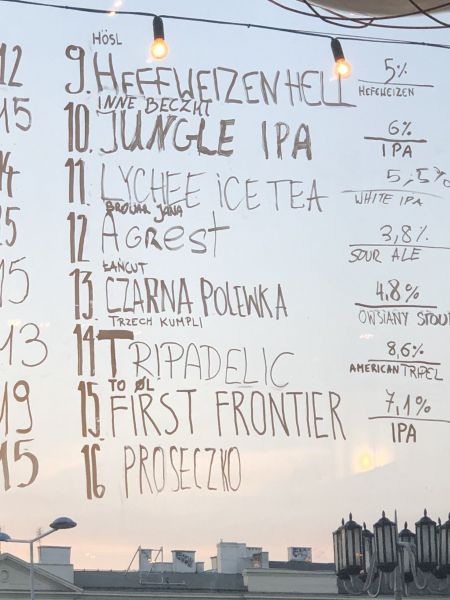 HÖSL
12 9. HEFFWEIZEN HELL 5%
HEFEWEIZEN
INNE BECZKI
15 10. JUNGLE IPA 6%
IPA
14 11. LYCHEE iCE TEA 5,5%
WHITE IPA
BROWAR JANA
12 AGRESt 3,8%
SOUR ALE
ŁAŃCUT
15 13. CZARNA POLEWKA 4,8%
OWSIANY STOUT
TRZECH KUMPLI
13 14 TRIPADELIC 8,6%
AMERICAN TRIPEL
TO ØL
19 15. FIRST FRONTIER 7,1%
IPA
15 16 PROSECZKO